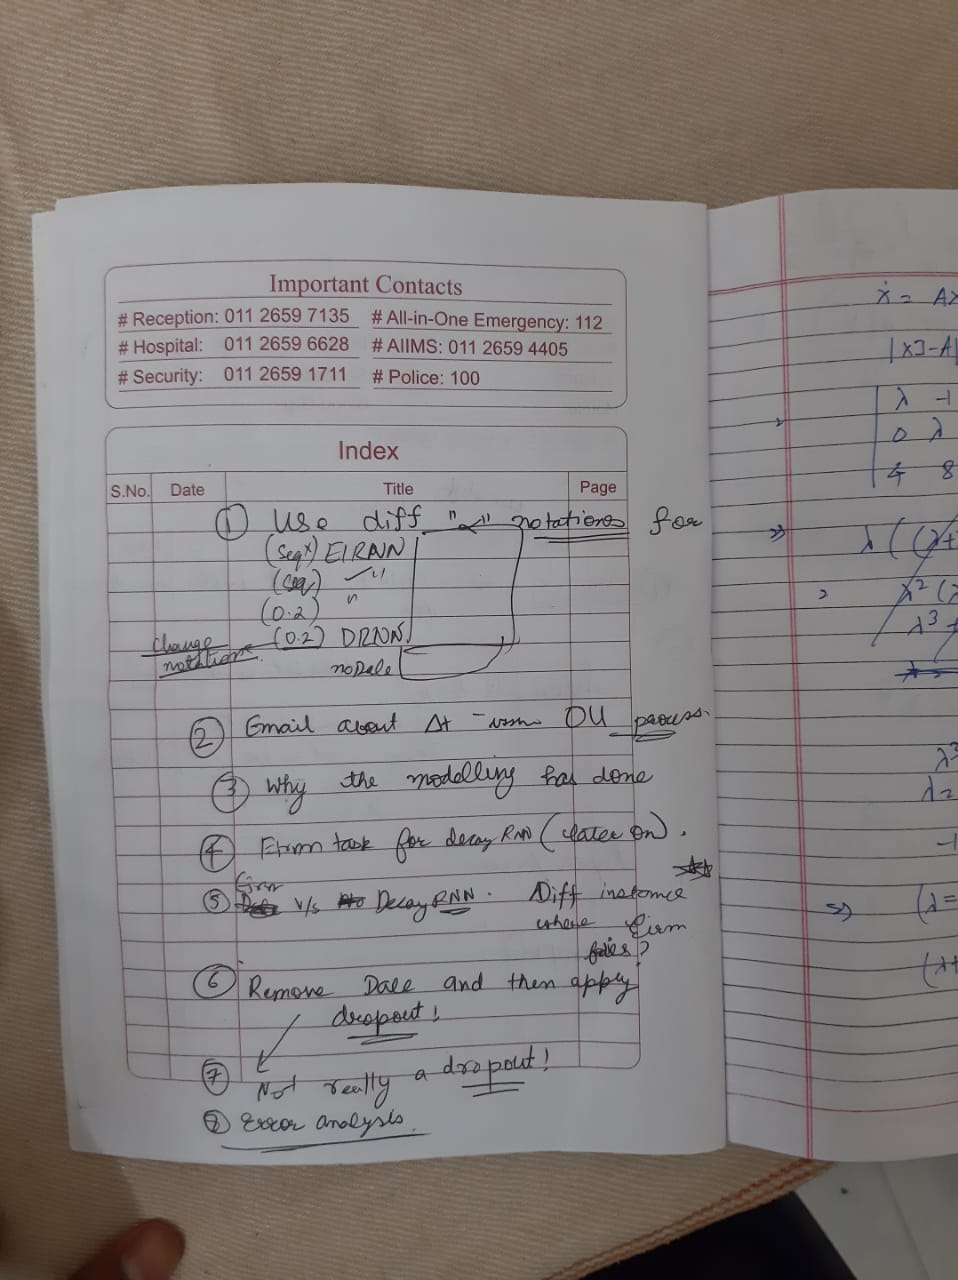 Important Contacts
# Reception: 011 2659 7135 # All-in-One Emergency: 112
# Hospital: 011 2659 6628 # AIIMS: 011 2659 4405
# Security: 011 2659 1711 # Police: 100
Index
S.No. Date Title Page
① Use diff. "α" notations for
EIRNN
(seq)
(0.2) "
(0.2) DRNN
change
notation
no Dale
② Email about Δt OU process.
③ Why the modelling has done
④ task for decay RNN (later on).
⑤ v/s Decay RNN. Diff instance
where
?
⑥ Remove Dale and then apply
dropout!
⑦ Not really a dropout!
⑧ Error analysis.
ẋ = Ax
λ -1
0 λ
4 8
λ3
λ=
-1
(λ=